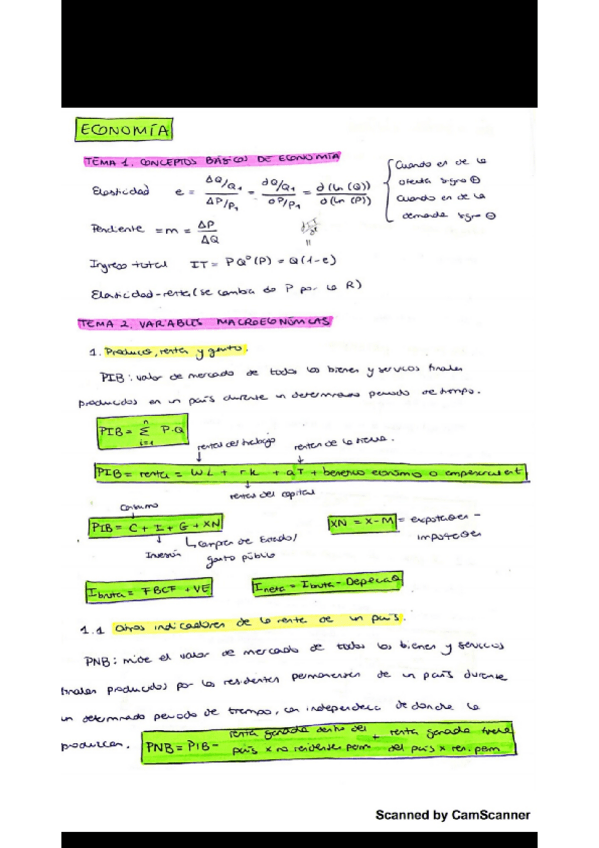 ECONOMÍA
TEMA 1. CONCEPTOS BÁSICOS DE ECONOMÍA
Elasticidad e = ΔQ/Q₁ / ΔP/P₁ = dQ/Q₁ / dP/P₁ = d(ln(Q)) / d(ln(P))
Cuando es de la
oferta signo ⊕
Cuando es de la
demanda signo ⊖
Pendiente = m = ΔP / ΔQ
Ingreso total IT = P Q^D (P) = Q(1-e)
Elasticidad-renta (se cambia do P por la R)
TEMA 2. VARIABLES MACROECONÓMICAS
1. Producto, renta y gasto.
PIB: valor de mercado de todos los bienes y servicios finales
producidos en un país durante un determinado periodo de tiempo.
PIB = Σ P·Q
n
i=1
rentas del trabajo
rentas de la tierra.
PIB = renta = WL + rk + qT + beneficio económio o empresarial
rentas del capital
Consumo
PIB = C + I + G + XN
XN = X-M = exportaciones -
importaciones
Inversión
compras de Estado/
gasto público
Ibruta = FBCF + VE
Ineta = Ibruta - Depreciac
1.1 Otros indicadores de la renta de un país.
PNB: mide el valor de mercado de todos los bienes y servicios
finales producidos por los residentes permanentes de un país durante
un determinado periodo de tiempo, con independencia de donde lo
produzcan.
PNB = PIB - renta ganada dentro del país x no residentes perm + renta ganada fuera del país x res. perm
Scanned by CamScanner